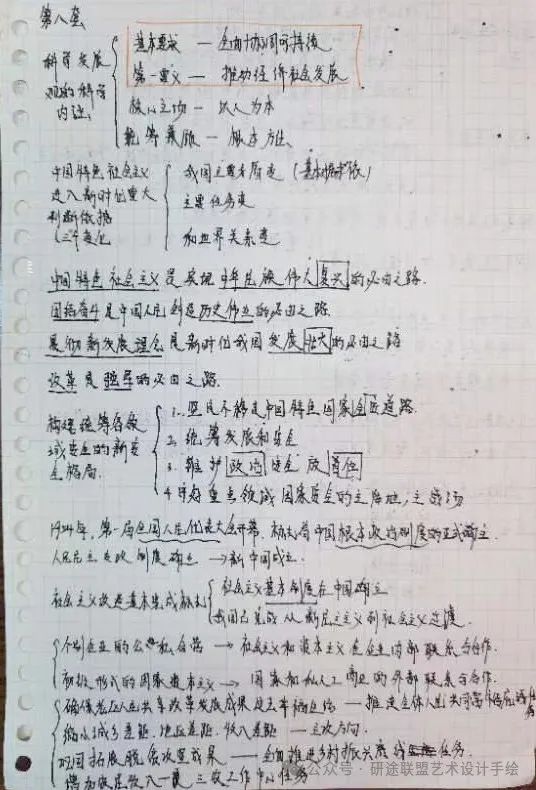 第八套
科学发展
观的科学
内涵
基本要求 — 全面协调可持续
第一要义 — 推动经济社会发展
核心立场 — 以人为本
统筹兼顾 — 根本方法
中国特色社会主义
进入新时代重大
判断依据
三个变化
我国主要矛盾变（基本依据）
主要任务变
和世界关系变
中国特色社会主义是实现中华民族伟大复兴的必由之路.
团结奋斗是中国人民创造历史伟业的必由之路.
贯彻新发展理念是新时代我国发展壮大的必由之路
改革是强军的必由之路.
构建统筹各领
域安全的新安
全格局.
1. 坚定不移走中国特色国家安全道路.
2. 统筹发展和安全
3. 维护政治安全放首位
4. 重点领域国家安全的主阵地,主战场
1954年,第一届全国人民代表大会开幕,标志着中国根本政治制度的正式确立.
人民民主专政制度确立 →新中国成立.
社会主义改造基本完成标志
社会主义基本制度在中国确立
我国已完成从新民主主义到社会主义过渡.
个别企业的公私合营 → 社会主义和资本主义在企业内部联系合作.
初级形式的国家资本主义 → 国家和私人工商业的外部联系合作.
缩小城乡差距,地区差距,收入差距 — 主攻方向.
巩固拓展脱贫攻坚成果 — 全面推进乡村振兴底线任务.
公众号 · 研途联盟艺术设计手绘